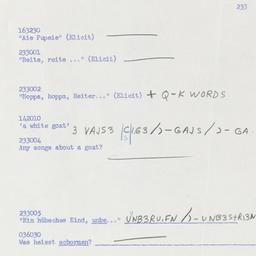 233
163230
"Aie Pupaie" (Elicit)
233001
"Reite, reite ..." (Elicit)
233002
"Hoppa, hoppa, Reiter..." (Elicit) + Q-K WORDS
142010
'a white goat' 3 VAJS3
233004
Any songs about a goat?
233003
"Ein hübsches Kind, unbe..."
036030
Was heisst schormen?